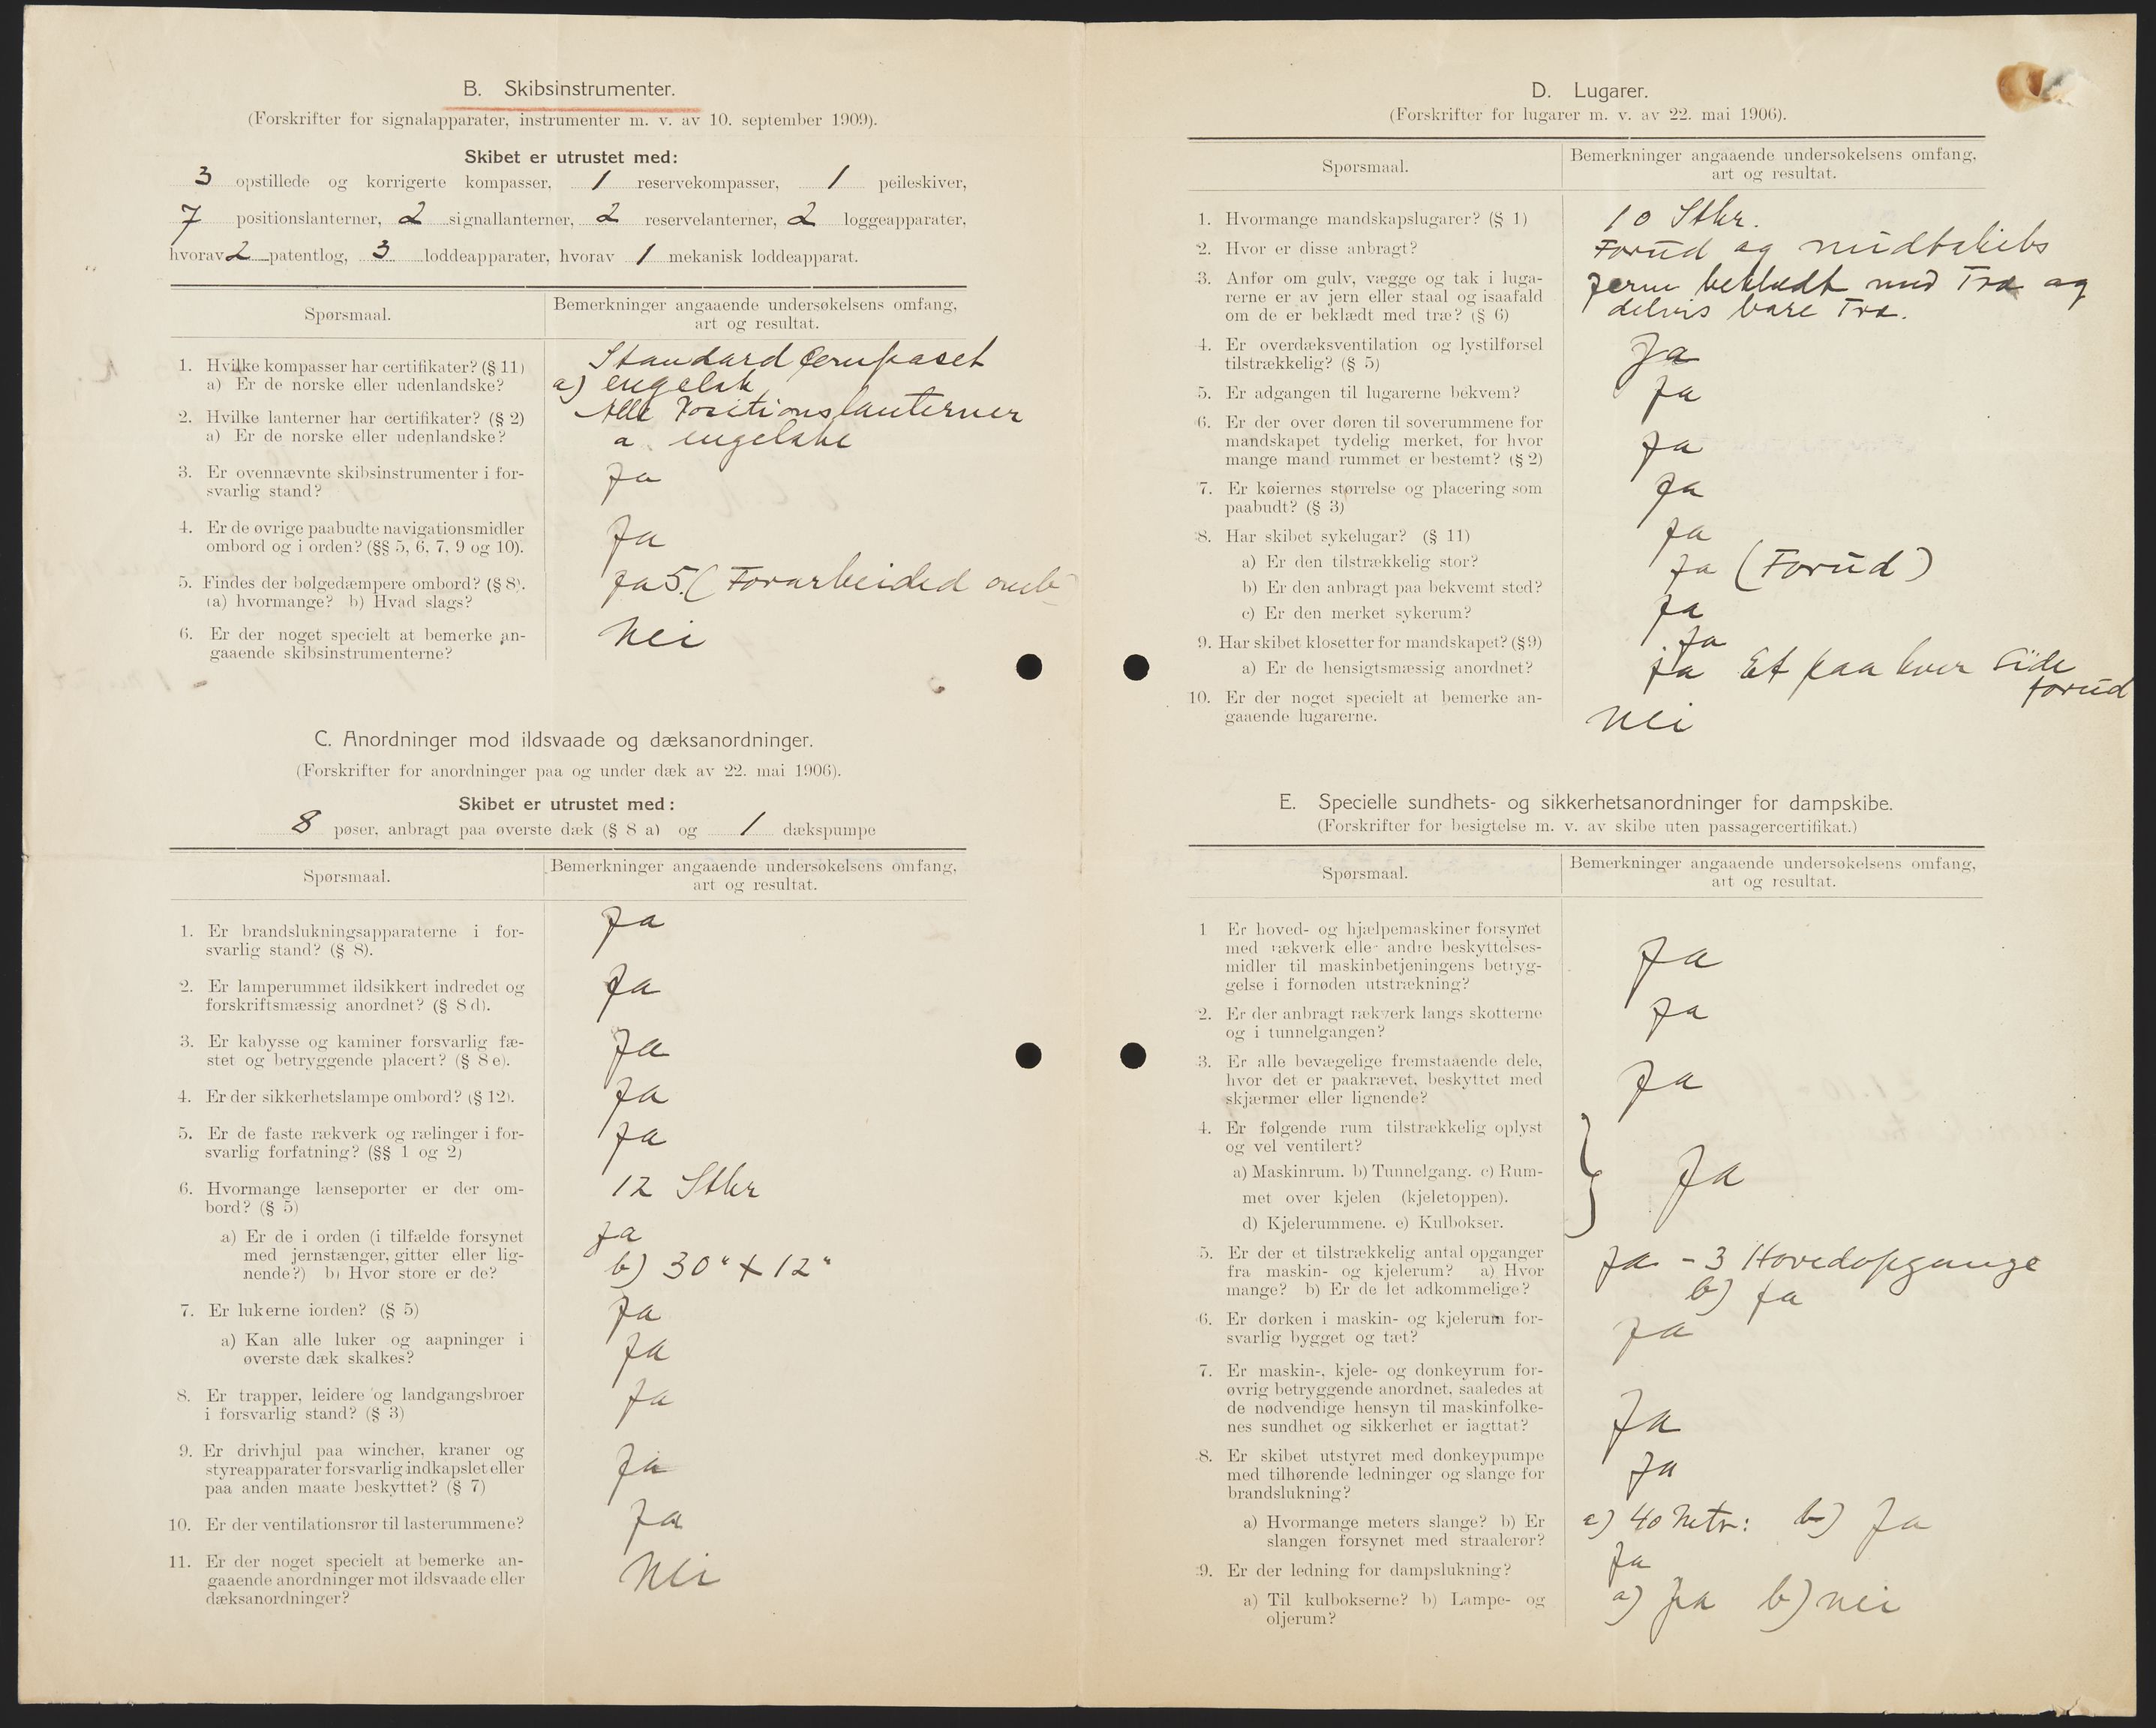 B. Skibsinstrumenter.
(Forskrifter for signalapparater, instrumenter m. v. av 10. september 1909).
Skibet er utrustet med:
3 opstillede og korrigerte kompasser, 1 reservekompasser, 1 peileskiver,
7 positionslanterner, 2 signallanterner, 2 reservelanterner, 2 loggeapparater,
hvorav 2 patentlog, 3 loddeapparater, hvorav 1 mekanisk loddeapparat.
Spørsmaal.
Bemerkninger angaaende undersøkelsens omfang,
art og resultat.
1. Hvilke kompasser har certifikater? (§ 11)
Standard Compaset
a) Er de norske eller udenlandske?
a) engelsk
2. Hvilke lanterner har certifikater? (§ 2)
Alle Positionslanterner
a) Er de norske eller udenlandske?
a engelske
3. Er ovennævnte skibsinstrumenter i for-
svarlig stand?
Ja
4. Er de øvrige paabudte navigationsmidler
ombord og i orden? (§§ 5, 6, 7, 9 og 10).
Ja
5. Findes der bølgedæmpere ombord? (§ 8).
(a) hvormange? b) Hvad slags?
Ja 5. (Forarbeided omb
6. Er der noget specielt at bemerke an-
gaaende skibsinstrumenterne?
Nei
C. Anordninger mod ildsvaade og dæksanordninger.
(Forskrifter for anordninger paa og under dæk av 22. mai 1906).
Skibet er utrustet med:
8 pøser, anbragt paa øverste dæk (§ 8 a) og 1 dækspumpe
Spørsmaal.
Bemerkninger angaaende undersøkelsens omfang,
art og resultat.
1. Er brandslukningsapparaterne i for-
svarlig stand? (§ 8).
Ja
2. Er lamperummet ildsikkert indredet og
forskriftsmæssig anordnet? (§ 8 d).
Ja
3. Er kabysse og kaminer forsvarlig fæ-
stet og betryggende placert? (§ 8 e).
Ja
4. Er der sikkerhetslampe ombord? (§ 12).
Ja
5. Er de faste rækverk og rælinger i for-
svarlig forfatning? (§§ 1 og 2)
Ja
6. Hvormange lænseporter er der om-
bord? (§ 5)
12 Stkr
a) Er de i orden (i tilfælde forsynet
med jernstænger, gitter eller lig-
nende?) b) Hvor store er de?
Ja
b) 30" x 12"
7. Er lukerne iorden? (§ 5)
Ja
a) Kan alle luker og aapninger i
øverste dæk skalkes?
Ja
8. Er trapper, leidere og landgangsbroer
i forsvarlig stand? (§ 3)
Ja
9. Er drivhjul paa wincher, kraner og
styreapparater forsvarlig indkapslet eller
paa anden maate beskyttet? (§ 7)
Ja
10. Er der ventilationsrør til lasterummene?
Ja
11. Er der noget specielt at bemerke an-
gaaende anordninger mot ildsvaade eller
dæksanordninger?
Nei
D. Lugarer.
(Forskrifter for lugarer m. v. av 22. mai 1906).
Spørsmaal.
Bemerkninger angaaende undersøkelsens omfang,
art og resultat.
1. Hvormange mandskapslugarer? (§ 1)
10 Stkr.
2. Hvor er disse anbragt?
Forud og midtskibs
3. Anfør om gulv, vægge og tak i luga-
rerne er av jern eller staal og isaafald
om de er beklædt med træ? (§ 6)
Jern beklædt med Træ og
delvis bare Træ.
4. Er overdæksventilation og lystilførsel
tilstrækkelig? (§ 5)
Ja
5. Er adgangen til lugarerne bekvem?
Ja
6. Er der over døren til soverummene for
mandskapet tydelig merket, for hvor
mange mand rummet er bestemt? (§ 2)
Ja
7. Er køiernes størrelse og placering som
paabudt? (§ 3)
Ja
8. Har skibet sykelugar? (§ 11)
Ja
a) Er den tilstrækkelig stor?
Ja (Forud)
b) Er den anbragt paa bekvemt sted?
Ja
c) Er den merket sykerum?
Ja
9. Har skibet klosetter for mandskapet? (§ 9)
a) Er de hensigtsmæssig anordnet?
Ja Et paa hver Side
forud
10. Er der noget specielt at bemerke an-
gaaende lugarerne.
Nei
E. Specielle sundhets- og sikkerhetsanordninger for dampskibe.
(Forskrifter for besigtelse m. v. av skibe uten passagercertifikat.)
Spørsmaal.
Bemerkninger angaaende undersøkelsens omfang,
art og resultat.
1 Er hoved- og hjælpemaskiner forsynet
med rækverk eller andre beskyttelses-
midler til maskinbetjeningens betryg-
gelse i fornøden utstrækning?
Ja
2. Er der anbragt rækverk langs skotterne
og i tunnelgangen?
Ja
3. Er alle bevægelige fremstaaende dele,
hvor det er paakrævet, beskyttet med
skjærmer eller lignende?
Ja
4. Er følgende rum tilstrækkelig oplyst
og vel ventilert?
a) Maskinrum. b) Tunnelgang. c) Rum-
met over kjelen (kjeletoppen).
d) Kjelerummene. e) Kulbokser.
Ja
5. Er der et tilstrækkelig antal opganger
fra maskin- og kjelerum? a) Hvor
mange? b) Er de let adkommelige?
Ja - 3 Hovedopgange
b) Ja
6. Er dørken i maskin- og kjelerum for-
svarlig bygget og tæt?
Ja
7. Er maskin-, kjele- og donkeyrum for-
øvrig betryggende anordnet, saaledes at
de nødvendige hensyn til maskinfolke-
nes sundhet og sikkerhet er iagttat?
Ja
8. Er skibet utstyret med donkeypumpe
med tilhørende ledninger og slange for
brandslukning?
Ja
a) Hvormange meters slange? b) Er
slangen forsynet med straalerør?
a) 40 Metr: b) Ja
9. Er der ledning for dampslukning?
Ja
a) Til kulbokserne? b) Lampe- og
oljerum?
a) Ja b) nei